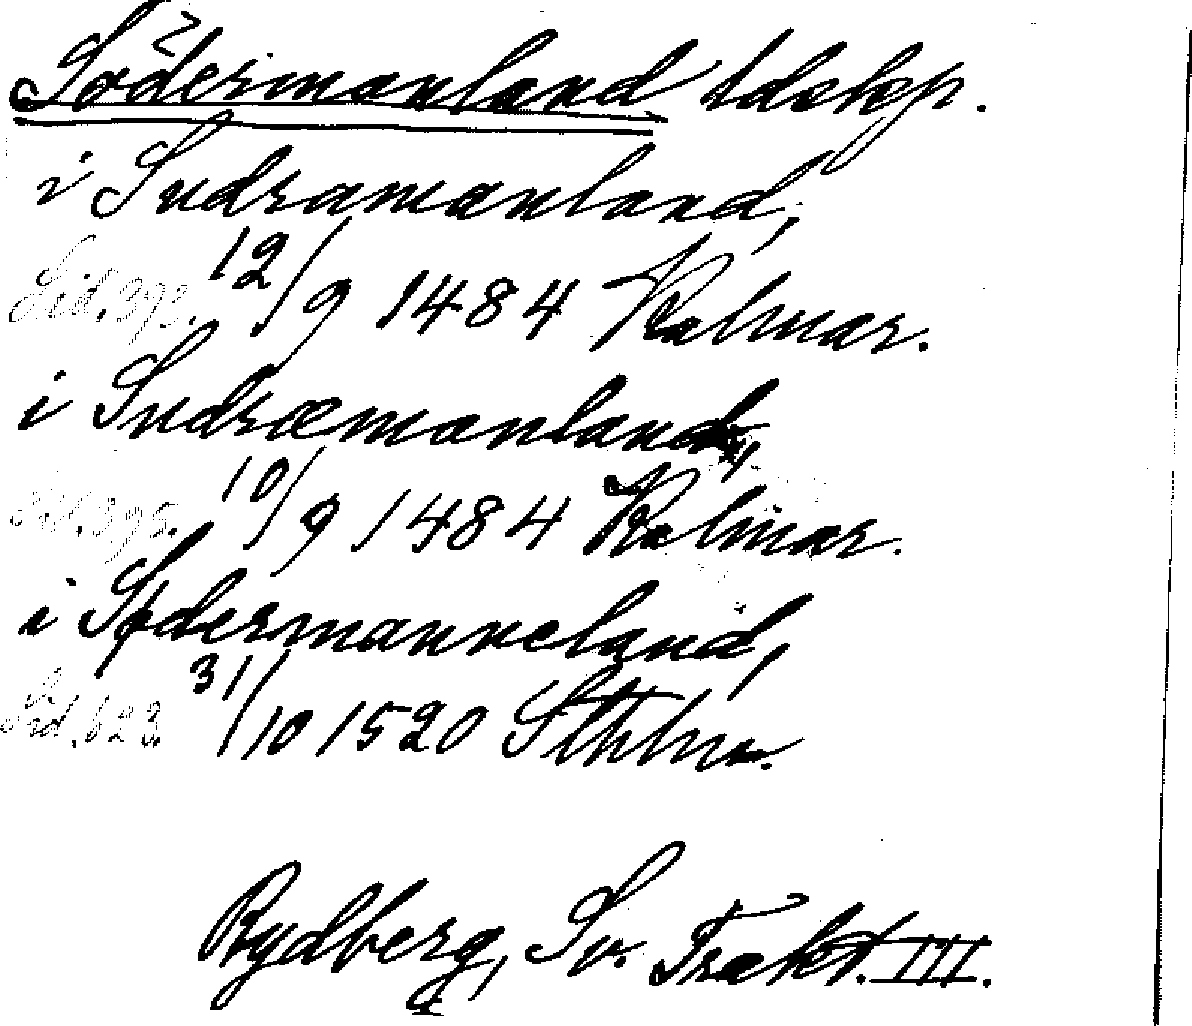 Södermanland ldskp.
i Sudramanland,
Sid. 393. 12/9 1484 Kalmar.
i Sudræmanland,
Sid. 395. 10/9 1484 Kalmar.
i Sødermanneland,
Sid. 623. 31/10 1520 Sthlm.
Rydberg, Sv. Trakt. III.